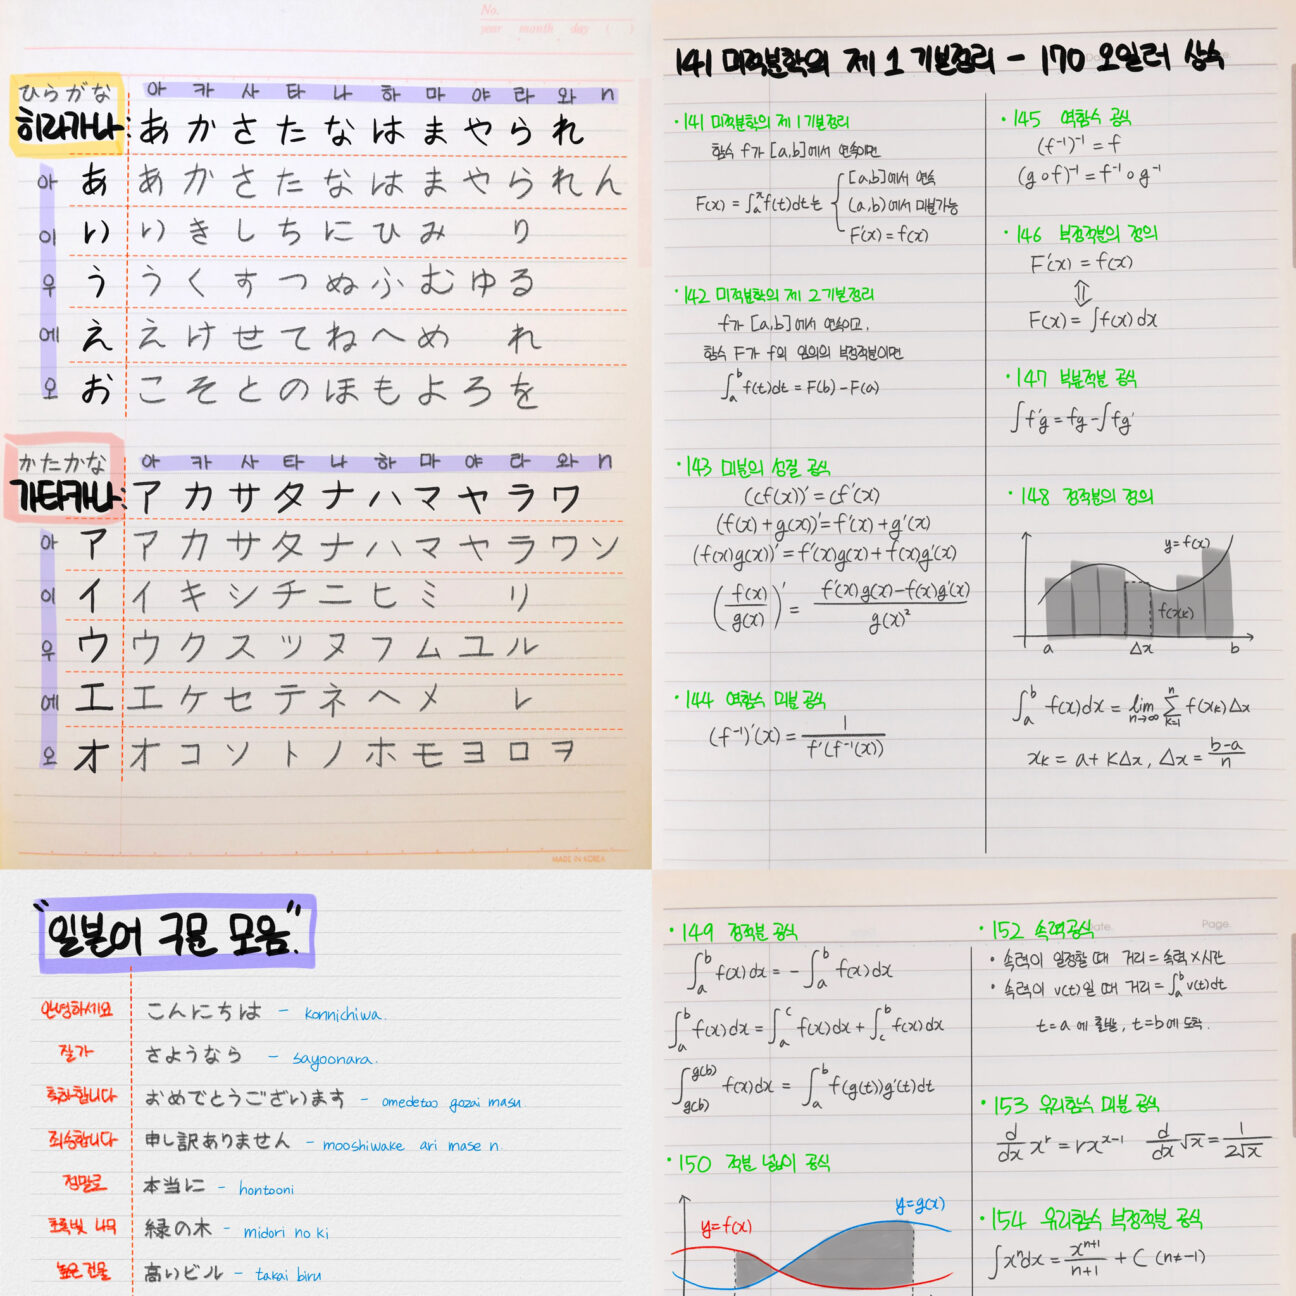 No.
year month day ( )
ひらがな
히라가나:
아 카 사 타 나 하 마 야 라 와 n
あ か さ た な は ま や ら れ
아 あ あ か さ た な は ま や ら れ ん
이 い い き し ち に ひ み り
우 う う く す つ ぬ ふ む ゆ る
에 え え け せ て ね へ め れ
오 お こ そ と の ほ も よ ろ を
かたかな
가타카나:
아 카 사 타 나 하 마 야 라 와 n
ア カ サ タ ナ ハ マ ヤ ラ ワ
아 ア ア カ サ タ ナ ハ マ ヤ ラ ワ ン
이 イ イ キ シ チ ニ ヒ ミ リ
우 ウ ウ ク ス ツ ヌ フ ム ユ ル
에 エ エ ケ セ テ ネ ヘ メ レ
오 オ オ コ ソ ト ノ ホ モ ヨ ロ ヲ
MADE IN KOREA
141 미적분학의 제 1 기본정리 - 170 오일러 상수
·141 미적분학의 제 1 기본정리
함수 f가 [a,b]에서 연속이면
F(x) = ∫ₐˣ f(t)dt는
[a,b]에서 연속
(a,b)에서 미분가능
F'(x) = f(x)
·142 미적분학의 제 2 기본정리
f가 [a,b]에서 연속이고,
함수 F가 f의 임의의 부정적분이면
∫ₐᵇ f(t)dt = F(b) - F(a)
·143 미분의 성질 공식
(cf(x))' = cf'(x)
(f(x) + g(x))' = f'(x) + g'(x)
(f(x)g(x))' = f'(x)g(x) + f(x)g'(x)
(f(x)/g(x))' = (f'(x)g(x) - f(x)g'(x))/g(x)²
·144 역함수 미분 공식
(f⁻¹)'(x) = 1/f'(f⁻¹(x))
·145 역함수 공식
(f⁻¹)⁻¹ = f
(g∘f)⁻¹ = f⁻¹∘g⁻¹
·146 부정적분의 정의
F'(x) = f(x)
⇕
F(x) = ∫f(x)dx
·147 부분적분 공식
∫f'g = fg - ∫fg'
·148 정적분의 정의
y=f(x)
f(xk)
a Δx b
∫ₐᵇ f(x)dx = lim n→∞ Σ k=1 n f(xk)Δx
xk = a + kΔx, Δx = (b-a)/n
"일본어 구문 모음."
안녕하세요 こんにちは - konnichiwa.
잘가 さようなら - sayoonara.
축하합니다 おめでとうございます - omedetoo gozai masu
죄송합니다 申し訳ありません - mooshiwake ari mase n
정말로 本当に - hontooni
초록빛 나무 緑の木 - midori no ki
높은 건물 高いビル - takai biru
·149 정적분 공식
∫ₐᵇ f(x)dx = -∫ₐᵇ f(x)dx
∫ₐᵇ f(x)dx = ∫ₐᶜ f(x)dx + ∫cᵇ f(x)dx
∫g(b)g(b) f(x)dx = ∫ₐᵇ f(g(t))g'(t)dt
·150 적분 넓이 공식
y=f(x)
y=g(x)
Date. Page
·152 속력공식
· 속력이 일정할 때 거리 = 속력×시간
· 속력이 v(t)일 때 거리 = ∫ₐᵇ v(t)dt
t=a에 출발, t=b에 도착.
·153 유리함수 미분 공식
d/dx xʳ = rxˣ⁻¹ d/dx √x = 1/2√x
·154 유리함수 부정적분 공식
∫xⁿdx = xⁿ⁺¹/n+1 + C (n≠-1)